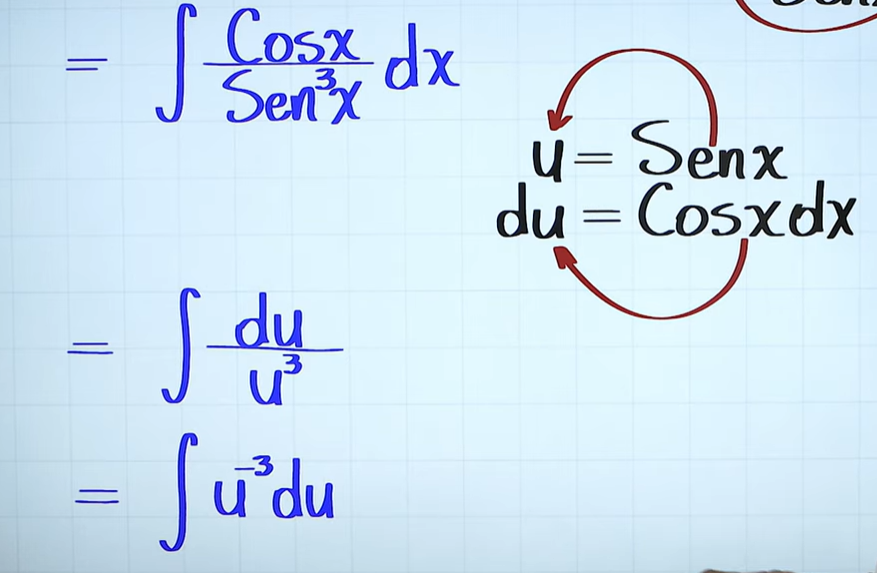 = ∫ Cosx / Sen³x dx
u = Senx
du = Cosxdx
= ∫ du / u³
= ∫ u⁻³du